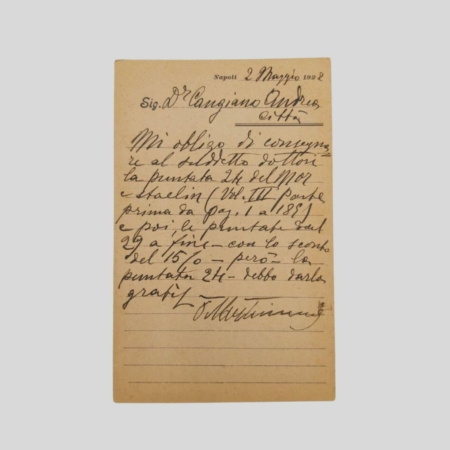 Napoli 2 Maggio 1882
Sig. Dr Cangiano Andrea
Città
Mi obligo di consegna-
re al sudetto dottore
la puntata 24 del Mor
e staelin (Vol. III Parte
prima da pag. 1 a 185)
e poi, le puntate dal
29 a fine – con lo sconto
del 15% – però – la
puntata 24 – debbo darla
gratis –